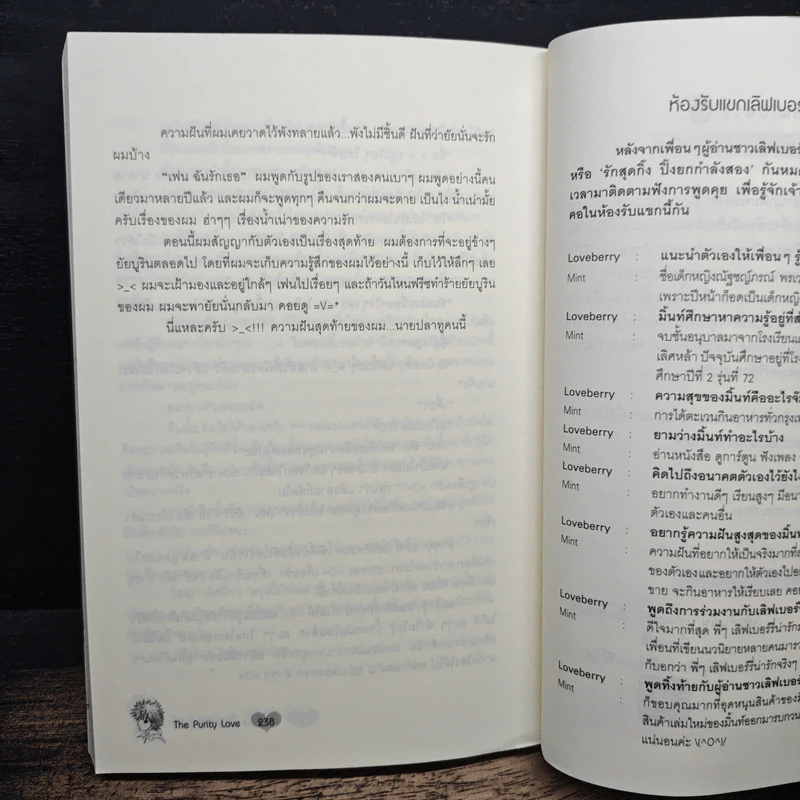 ความฝันที่ผมเคยวาดไว้พังทลายแล้ว...พังไม่มีชิ้นดี ฝันที่ว่ายัยนั่นจะรัก
ผมบ้าง
“เฟน ฉันรักเธอ” ผมพูดกับรูปของเราสองคนเบาๆ ผมพูดอย่างนี้คน
เดียวมาหลายปีแล้ว และผมก็จะพูดทุกๆ คืนจนกว่าผมจะตาย เป็นไง น้ำเน่ามั้ย
ครับเรื่องของผม ฮ่าๆๆ เรื่องน้ำเน่าของความรัก
ตอนนี้ผมสัญญากับตัวเองเป็นเรื่องสุดท้าย ผมต้องการที่จะอยู่ข้างๆ
ยัยบูรินตลอดไป โดยที่ผมจะเก็บความรู้สึกของผมไว้อย่างนี้ เก็บไว้ให้ลึกๆ เลย
>_< ผมจะเฝ้ามองและอยู่ใกล้ๆ เฟนไปเรื่อยๆ และถ้าวันไหนฟรีซทำร้ายยัยบูริน
ของผม ผมจะพายัยนั่นกลับมา คอยดู =V=*
นี่แหละครับ >_<!!! ความฝันสุดท้ายของผม...นายปลาทูคนนี้
The Purity Love 238
ห้องรับแขกเลิฟเบอร์
หลังจากเพื่อนๆผู้อ่านชาวเลิฟเบอร์
หรือ ‘รักสุดกิ้ง ปิ๊งยกกำลังสอง’ กันหม
เวลามาติดตามฟังการพูดคุย เพื่อรู้จักเจ้า
คอในห้องรับแขกนี้กัน
Loveberry : แนะนำตัวเองให้เพื่อนๆ รู้
Mint : ชื่อเด็กหญิงณัฐชญ์ภรณ์ พรเว
เพราะปีหน้าก็อดเป็นเด็กหญิ
Loveberry : มิ้นท์ศึกษาหาความรู้อยู่ที่
Mint : จบชั้นอนุบาลมาจากโรงเรียน
เลิศหล้า ปัจจุบันศึกษาอยู่ที่โร
ศึกษาปีที่ 2 รุ่นที่ 72
Loveberry : ความสุขของมิ้นท์คืออะไร
Mint : การได้ตะเวนกินอาหารทั่วกรุงเท
Loveberry : ยามว่างมิ้นท์ทำอะไรบ้าง
Mint : อ่านหนังสือ ดูการ์ตูน ฟังเพลง
Loveberry : คิดไปถึงอนาคตตัวเองไว้ยังไ
Mint : อยากทำงานดีๆ เรียนสูงๆ มีอนา
ตัวเองและคนอื่น
Loveberry : อยากรู้ความฝันสูงสุดของมิ้น
Mint : ความฝันที่อยากให้เป็นจริงมากที่
ของตัวเองและอยากให้ตัวเองไป
ขาย จะกินอาหารให้เรียบเลย คอย
Loveberry : พูดถึงการร่วมงานกับเลิฟเบอร์
Mint : ดีใจมากที่สุด พี่ๆ เลิฟเบอร์รี่น่ารั
เพื่อนที่เขียนนวนิยายหลายคนมา
ก็บอกว่า พี่ๆ เลิฟเบอร์รี่น่ารักจริงๆ
Loveberry : พูดทิ้งท้ายกับผู้อ่านชาวเลิฟเบอร์
Mint : ก็ขอบคุณมากที่อุดหนุนสินค้าของมิ้
สินค้าเล่มใหม่ของมิ้นท์ออกมารบกวน
แน่นอนค่ะ \(^O^)/